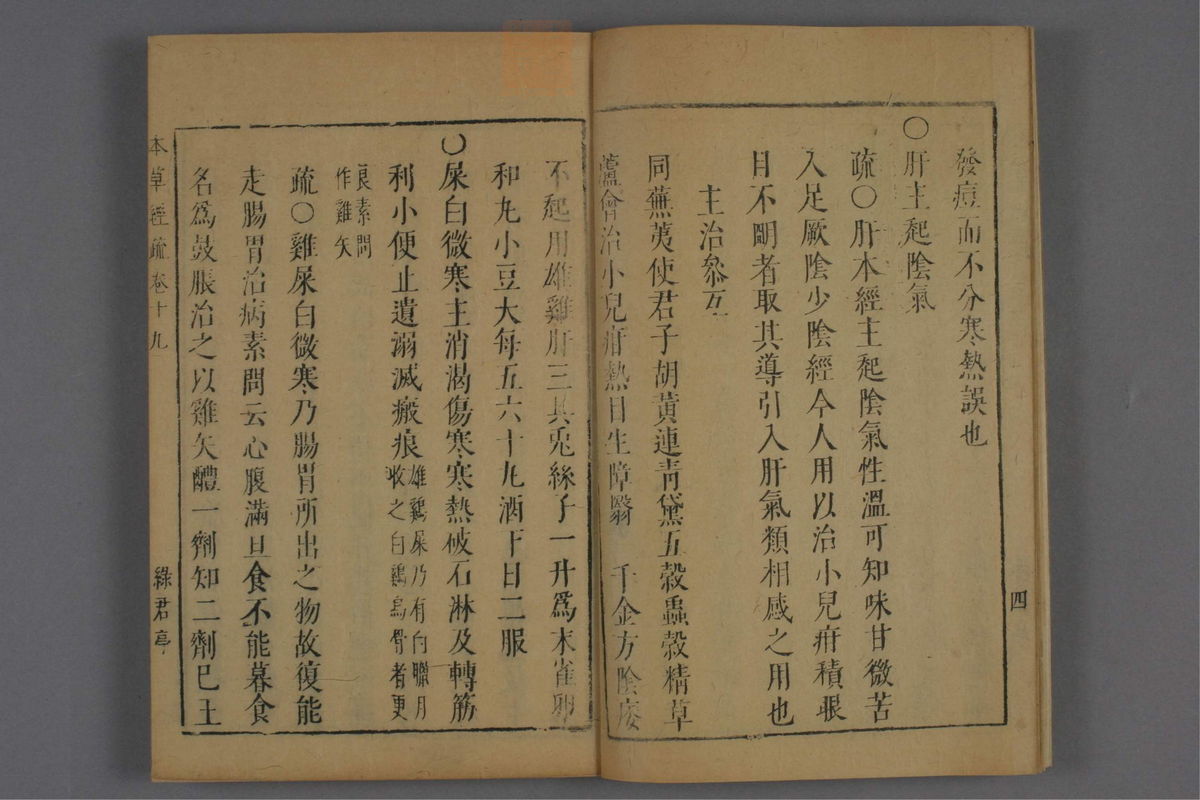 發痘而不分寒熱誤也
○肝主起陰氣
疏○肝本經主起陰氣性溫可知味甘微苦
入足厥陰少陰經今人用以治小兒疳積眼
目不明者取其導引入肝氣類相感之用也
主治叅互
同蕪荑使君子胡黃連青黛五穀蟲穀精草
蘆會治小兒疳熱目生障翳 千金方陰痿
四
不起用雄雞肝三具兎絲子一升爲末雀卵
和丸小豆大每五六十丸酒下日二服
○屎白微寒主消渴傷寒寒熱破石淋及轉筋
利小便止遺溺滅瘢痕雄鷄屎乃有白臘月
收之白鷄烏骨者更
良素問
作雞矢
疏○雞屎白微寒乃腸胃所出之物故復能
走腸胃治病素問云心腹滿旦食不能暮食
名爲鼓脹治之以雞矢醴一劑知二劑巳王
本草經疏卷十九
綠君亭